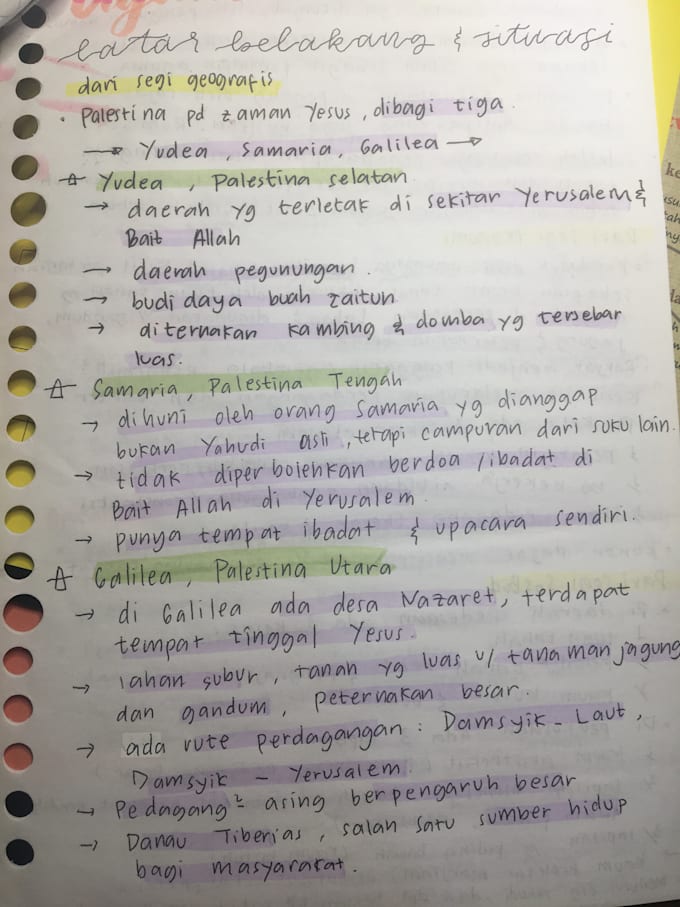 latar belakang & situasi
dari segi geografis
• Palestina pd zaman Yesus, dibagi tiga.
→ Yudea, Samaria, Galilea →
☆ Yudea, Palestina selatan
→ daerah yg terletak di sekitar Yerusalem &
Bait Allah
→ daerah pegunungan.
→ budi daya buah zaitun
→ diternakan kambing & domba yg tersebar
luas.
☆ Samaria, Palestina Tengah
→ dihuni oleh orang Samaria yg dianggap
bukan Yahudi asli, tetapi campuran dari suku lain.
→ tidak diperbolehkan berdoa /ibadat di
Bait Allah di Yerusalem.
→ punya tempat ibadat & upacara sendiri.
☆ Galilea, Palestina Utara
→ di Galilea ada desa Nazaret, terdapat
tempat tinggal Yesus.
→ lahan subur, tanah yg luas u/ tanaman jagung
dan gandum, peternakan besar.
→ ada rute perdagangan: Damsyik - Laut,
Damsyik - Yerusalem.
→ Pedagang² asing berpengaruh besar
→ Danau Tiberias, salah satu sumber hidup
bagi masyarakat.